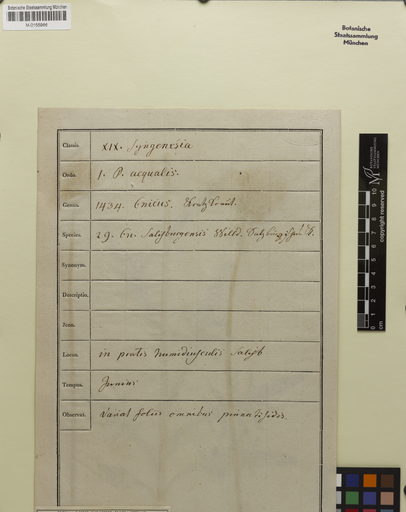 Botanische Staatssammlung München
M-0155966
Botanische
Staatssammlung
München
Classis. XIX. Syngenesia
Ordo. 1. P. aequalis.
Genus. 1434. Cnicus. Kratzkraut.
Species. 29. Cn. Salisburgensis Willd.
Synonym.
Descriptio.
Icon.
Locus. in pratis humidiusculis Salisb
Tempus. Junius
Observat. Variat foliis omnibus pinnatifidis
copyright reserved
cm